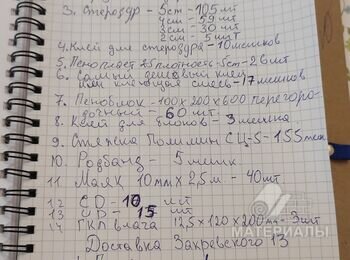 3. Стеродур - 5см - 105 мі
4см - 59 шт
3см - 30 шт
2см - 5 шт
4. Клей для стеродура - 10 мешков
5. Пенопласт 25 плотность - 5см - 26 шт
6. Самый дешевый клей
или клеющая смесь - 17 мешков
7. Пеноблок - 100 х 200 х 600 перегоро-
дочный - 60 шт
8. Клей для блоков - 3 мешка
9. Стяжка Полимин СЦ-5 - 1.55 тон
10. Ротбанд - 5 мешк.
11. Маяк 10mm x 2,5м - 40 шт.
12 CD - 10 шт
13 UD - 15 шт
14 ГКЛ влага 12,5 х 120 х 200 - 3 шт
Доставка Закревского 13
МАТЕРИАЛЫ